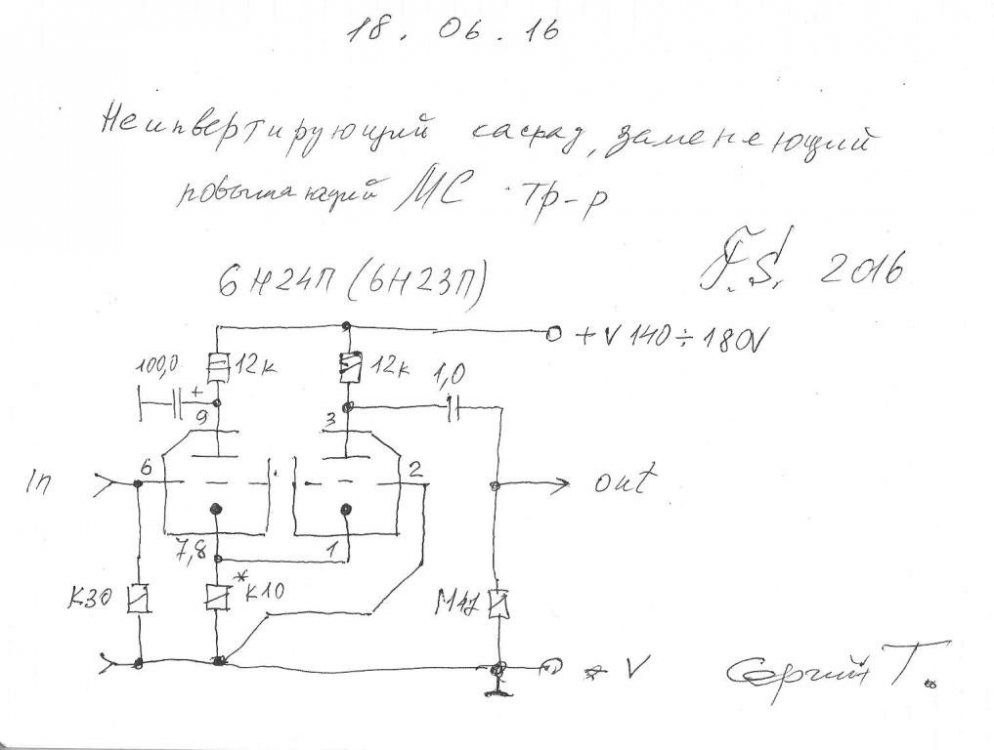 18. 06. 16
Неинвертирующий каскад, заменяющий
повышающий МС тр-р
F.S. 2016
6Н24П (6Н23П)
+V 140÷180V
100,0
+
12к
12к
1,0
9
3
In
6
2
out
7,8
1
К30
*
К10
М47
- V
Сергий Т.